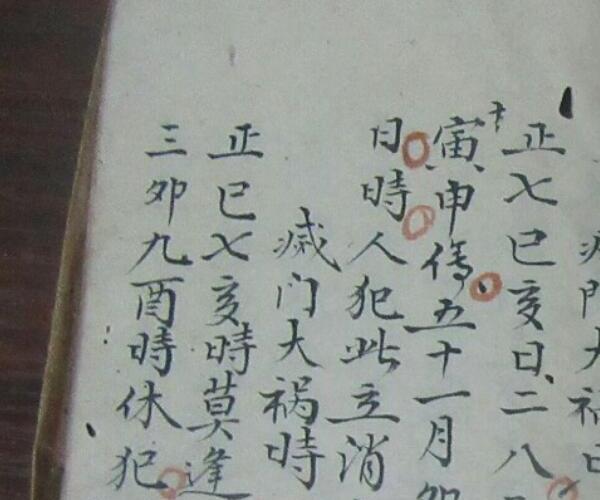 門大祸日
正七巳亥日二八
寅申傳五十一月卯
日時人犯此立消
滅门大祸時
正巳七亥時莫逢
三卯九酉時休犯